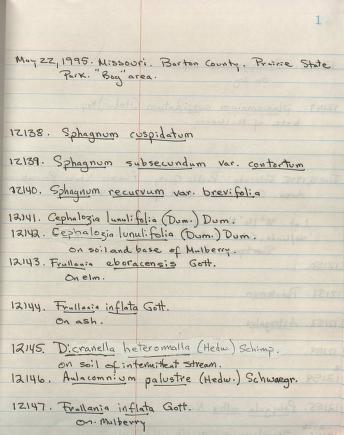 1
May 22, 1995. Missouri. Barton County. Prairie State
Park. "Bog" area.
12138. Sphagnum cuspidatum
12139. Sphagnum subsecundum var. contortum
12140. Sphagnum recurvum var. brevifolia
12141. Cephalozia lunulifolia (Dum.) Dum.
12142. Cephalozia lunulifolia (Dum.) Dum.
on soil and base of Mulberry.
12143. Frullania eboracensis Gott.
On elm.
12144. Frullania inflata Gott.
On ash.
12145. Dicranella heteromalla (Hedw.) Schimp.
on soil of intermittent stream.
12146. Aulacomnium palustre (Hedw.) Schwaegr.
12147. Frullania inflata Gott.
on Mulberry